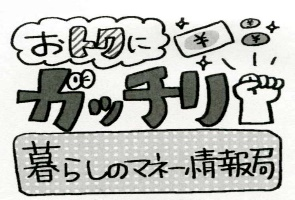 おトクに
¥
¥
¥
ガッチリ
暮らしのマネー情報局